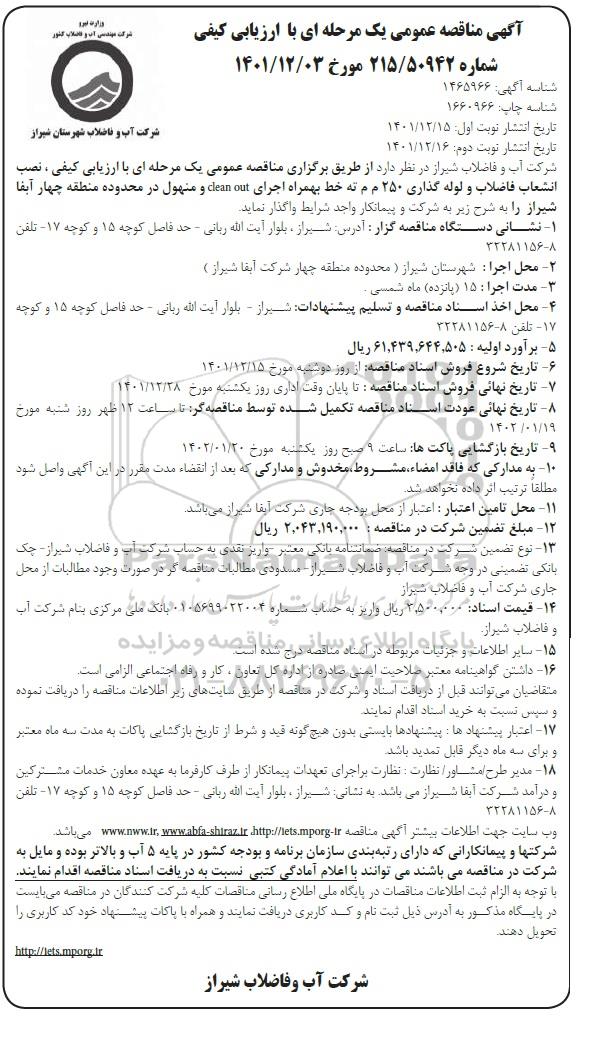 وزارت نیرو
شرکت مهندسی آب و فاضلاب کشور
شرکت آب و فاضلاب شهرستان شیراز
آگهی مناقصه عمومی یک مرحله ای با ارزیابی کیفی
شماره ۲۱۵/۵۰۹۴۲ مورخ ۱۴۰۱/۱۲/۰۳
شناسه آگهی: ۱۴۶۵۹۶۶
شناسه چاپ: ۱۶۶۰۹۶۶
تاریخ انتشار نوبت اول: ۱۴۰۱/۱۲/۱۵
تاریخ انتشار نوبت دوم: ۱۴۰۱/۱۲/۱۶
شرکت آب و فاضلاب شیراز در نظر دارد از طریق برگزاری مناقصه عمومی یک مرحله ای با ارزیابی کیفی ، نصب
انشعاب فاضلاب و لوله گذاری ۲۵۰ م م ته خط بهمراه اجرای clean out و منهول در محدوده منطقه چهار آبفا
شیراز را به شرح زیر به شرکت و پیمانکار واجد شرایط واگذار نماید.
۱- نشــانی دســتگاه مناقصه گزار : آدرس: شــیراز ، بلوار آیت الله ربانی - حد فاصل کوچه ۱۵ و کوچه ۱۷- تلفن
۸-۳۲۲۸۱۱۵۶
۲- محل اجرا : شهرستان شیراز ( محدوده منطقه چهار شرکت آبفا شیراز )
۳- مدت اجرا : ۱۵ (پانزده) ماه شمسی .
۴- محل اخذ اســناد مناقصه و تسلیم پیشنهادات: شــیراز - بلوار آیت الله ربانی - حد فاصل کوچه ۱۵ و کوچه
۱۷- تلفن ۸-۳۲۲۸۱۱۵۶
۵- برآورد اولیه : ۶۱,۴۳۹,۶۴۴,۵۰۵ ریال
۶- تاریخ شروع فروش اسناد مناقصه: از روز دوشنبه مورخ ۱۴۰۱/۱۲/۱۵
۷- تاریخ نهائی فروش اسناد مناقصه : تا پایان وقت اداری روز یکشنبه مورخ ۱۴۰۱/۱۲/۲۸
۸- تاریخ نهائی عودت اســناد مناقصه تکمیل شــده توسط مناقصه‌گر: تا ســاعت ۱۲ ظهر روز شنبه مورخ
۱۴۰۲ /۰۱/۱۹
۹- تاریخ بازگشایی پاکت ها: ساعت ۹ صبح روز یکشنبه مورخ ۱۴۰۲/۰۱/۲۰
۱۰- به مدارکی که فاقد امضاء،مشــروط،مخدوش و مدارکی که بعد از انقضاء مدت مقرر در این آگهی واصل شود
مطلقاً ترتیب اثر داده نخواهد شد.
۱۱- محل تامین اعتبار : اعتبار از محل بودجه جاری شرکت آبفا شیراز می‌باشد.
۱۲- مبلغ تضمین شرکت در مناقصه : ۲,۰۴۳,۱۹۰,۰۰۰ ریال
۱۳- نوع تضمین شــرکت در مناقصه: ضمانتنامه بانکی معتبر -واریز نقدی به حساب شرکت آب و فاضلاب شیراز- چک
بانکی تضمینی در وجه شــرکت آب و فاضلاب شــیراز- مسدودی مطالبات مناقصه گر در صورت وجود مطالبات از محل
جاری شرکت آب و فاضلاب شیراز
۱۴- قیمت اسناد: ۳,۵۰۰,۰۰۰ ریال واریز به حساب شــماره ۰۱۰۵۶۹۹۰۲۲۰۰۴ بانک ملی مرکزی بنام شرکت آب
و فاضلاب شیراز.
۱۵- سایر اطلاعات و جزئیات مربوطه در اسناد مناقصه درج شده است.
۱۶- داشتن گواهینامه معتبر صلاحیت ایمنی صادره از اداره کل تعاون ، کار و رفاه اجتماعی الزامی است.
متقاضیان می‌توانند قبل از دریافت اسناد و شرکت در مناقصه از طریق سایت‌های زیر اطلاعات مناقصه را دریافت نموده
و سپس نسبت به خرید اسناد اقدام نمایند.
۱۷- اعتبار پیشنهاد ها : پیشنهادها بایستی بدون هیچ‌گونه قید و شرط از تاریخ بازگشایی پاکات به مدت سه ماه معتبر
و برای سه ماه دیگر قابل تمدید باشد.
۱۸- مدیر طرح/مشــاور/ نظارت : نظارت براجرای تعهدات پیمانکار از طرف کارفرما به عهده معاون خدمات مشــترکین
و درآمد شــرکت آبفا شــیراز می باشد. به نشانی: شــیراز ، بلوار آیت الله ربانی - حد فاصل کوچه ۱۵ و کوچه ۱۷- تلفن
۸-۳۲۲۸۱۱۵۶
وب سایت جهت اطلاعات بیشتر آگهی مناقصه www.nww.ir, www.abfa-shiraz.ir ,http://iets.mporg-ir می‌باشد.
شرکتها و پیمانکارانی که دارای رتبه‌بندی سازمان برنامه و بودجه کشور در پایه ۵ آب و بالاتر بوده و مایل به
شرکت در مناقصه می باشند می توانند با اعلام آمادگی کتبی نسبت به دریافت اسناد مناقصه اقدام نمایند.
با توجه به الزام ثبت اطلاعات مناقصات در پایگاه ملی اطلاع رسانی مناقصات کلیه شرکت کنندگان در مناقصه می‌بایست
در پایــگاه مذکــور به آدرس ذیل ثبت نام و کــد کاربری دریافت نمایند و همراه با پاکات پیشــنهاد خود کد کاربری را
تحویل دهند.
http://iets.mporg.ir
شرکت آب وفاضلاب شیراز
پایگاه اطلاع رسانی مناقصه و مزایده